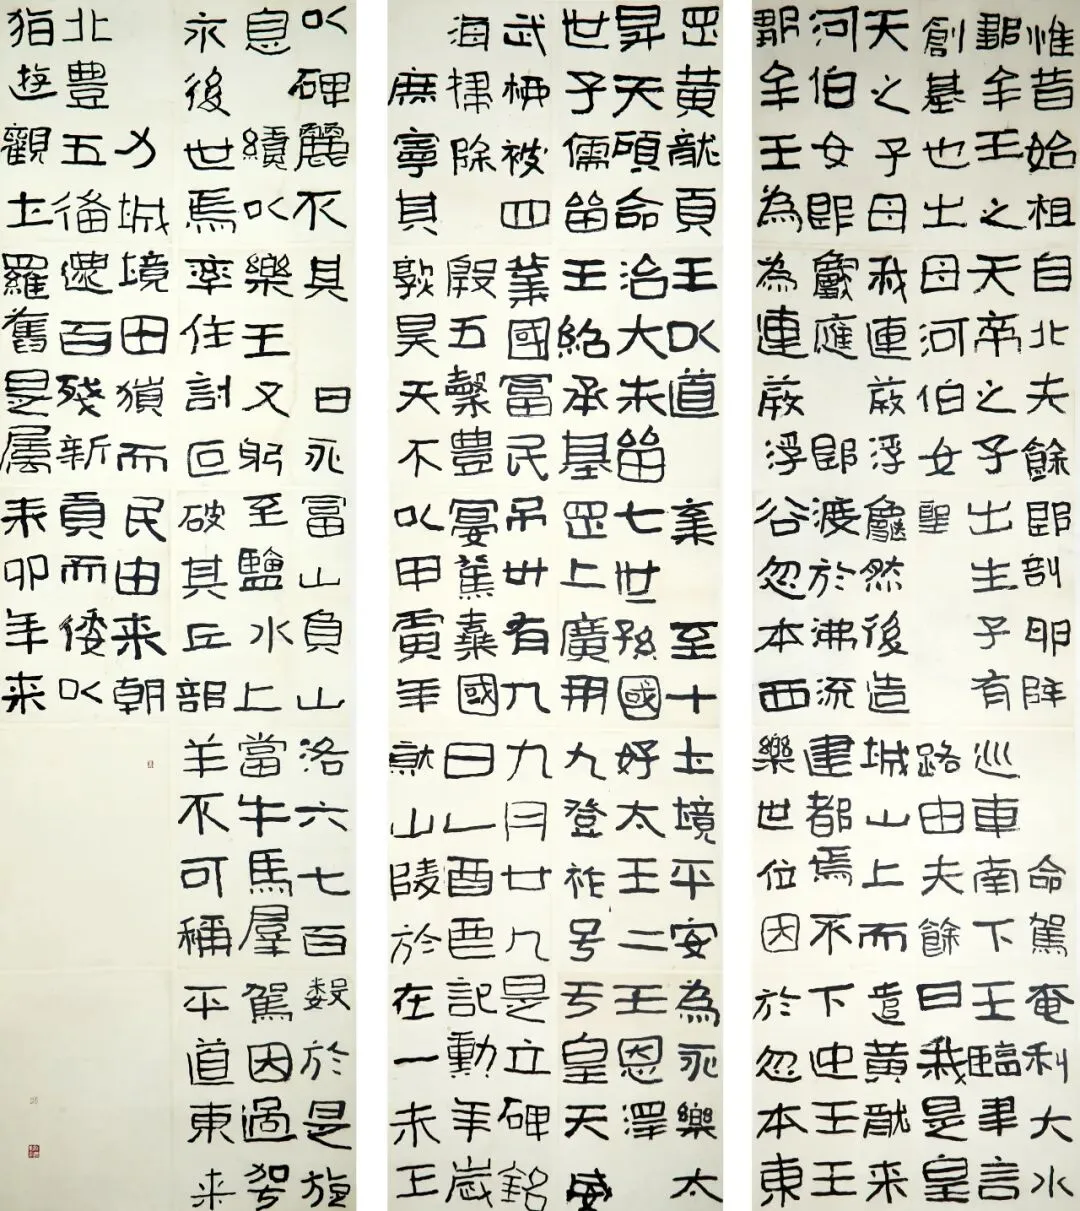 惟昔始祖自北夫餘郎剖卵降命駕奄利大水
鄒牟王之天帝之子出生子有巡車南下王臨聿言
創基也出母河伯女聖路由夫餘曰我是皇
天之子母我連葭浮龜然後造城山上而遣黃龍来
河伯女郎應郎渡於沸流建都焉不下迎王王
鄒牟王為為連葭浮谷忽本西樂世位因於忽本東
罡黃龍頁王以道棄至十土境平安為永樂太
昇天碩命治大朱留七世孫國好太王二王恩澤
世子儒留王紹承基罡上廣用九登祚号于皇天威
武柳被四業國富民弔卅有九九月廿九是立碑銘
海掃除殷五穀豊宴駕棄國曰乙酉酉記勳年歲
庶寧其敦昊天不以甲寅年就山陵於在一未王
以碑麗不其曰永富山負山洛六七百數於是旋
息續以樂王又躬至鹽水上當牛馬羣駕因過駕
永後世焉率住討叵破其丘部羊不可稱平道東来
力城境田獵而民由来朝
北豊五備還百殘新貢而倭以
狛遊觀土羅舊是屬来卯年来